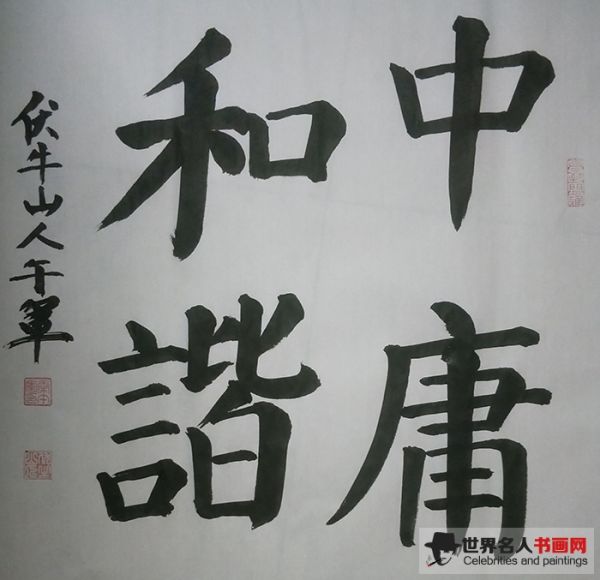 中庸
和諧
伏牛山人午
世界名人书画网
Celebrities and paintings